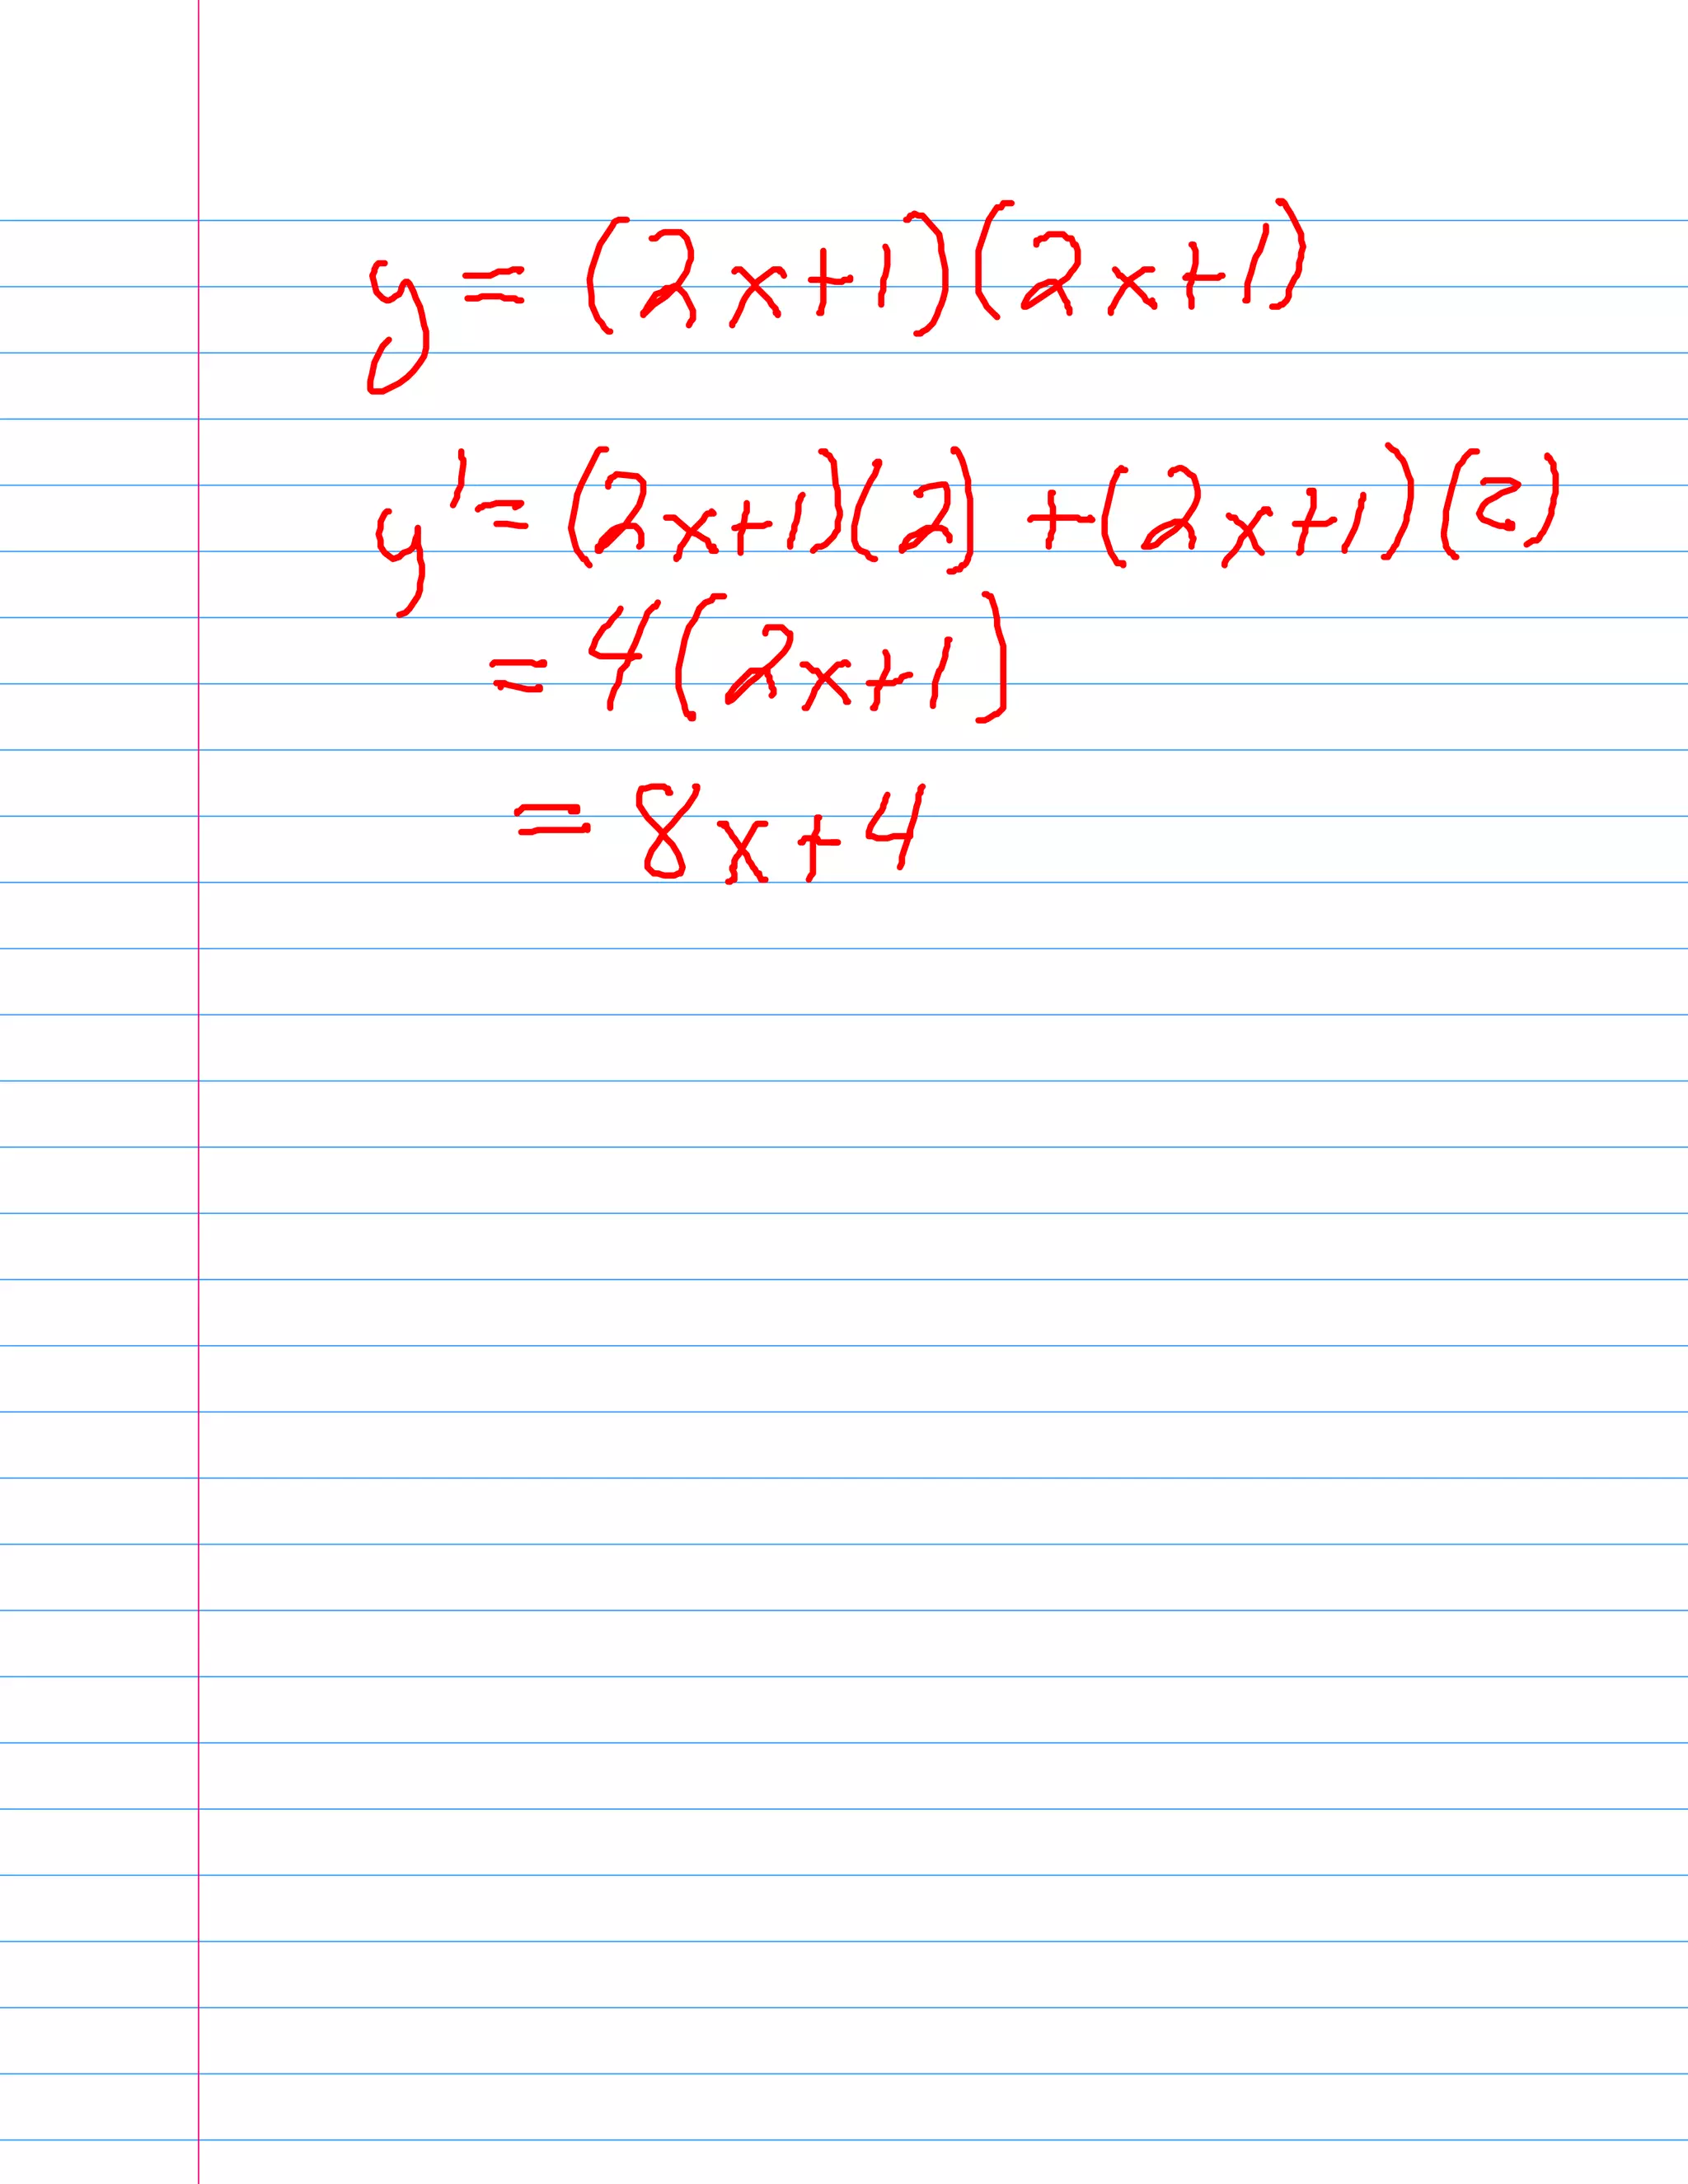 y = (2x+1)(2x+1)
y' = (2x+1)(2) + (2x+1)(2)
= 4(2x+1)
= 8x+4